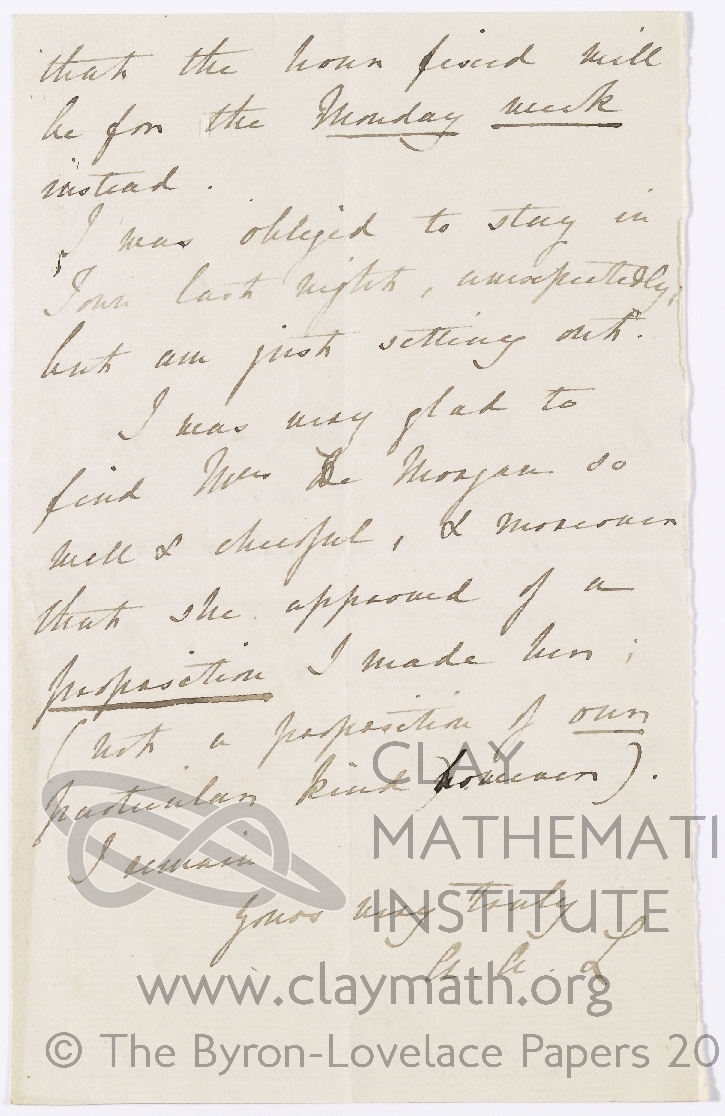 that the hour fixed will
be for the Monday week
instead.
I was obliged to stay in
Town last night, unexpectedly,
but am just setting out.
I was very glad to
find Mrs De Morgan so
well & cheerful, & moreover
that she approved of a
proposition I made her;
(not a proposition of our
particular kind however).
I remain
Yours very truly
A. A. L
CLAY
MATHEMATI
INSTITUTE
www.claymath.org
© The Byron-Lovelace Papers 20